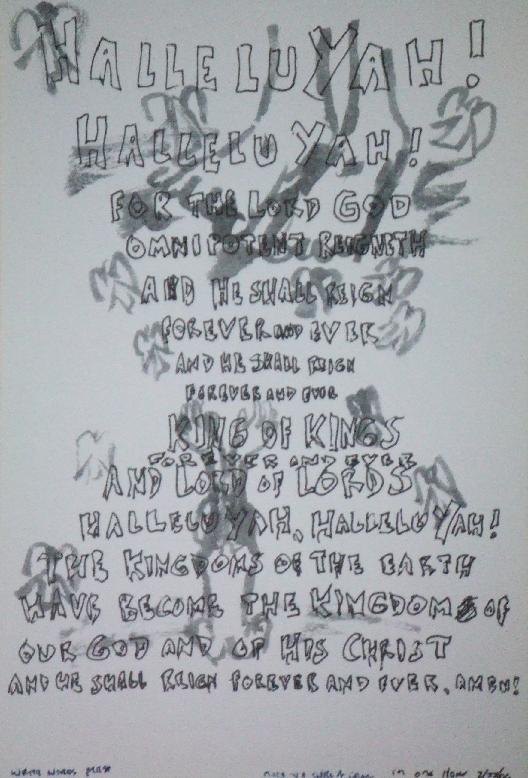 HALLELUYAH!
HALLELUYAH!
FOR THE LORD GOD
OMNIPOTENT REIGNETH
AND HE SHALL REIGN
FOREVER AND EVER
AND HE SHALL REIGN
FOREVER AND EVER
KING OF KINGS
FOREVER AND EVER
AND LORD OF LORDS
HALLELUYAH, HALLELUYAH!
THE KINGDOMS OF THE EARTH
HAVE BECOME THE KINGDOMS OF
OUR GOD AND OF HIS CHRIST
AND HE SHALL REIGN FOREVER AND EVER, AMEN!
WORDS
in one Hour